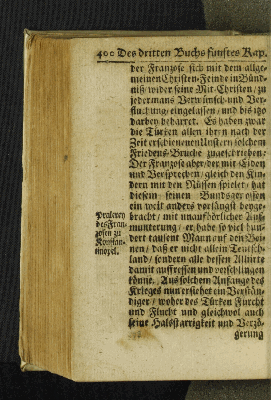 400 Des dritten Buchs fünftes Kap.
der Franzose sich mit dem allge-
meinen Christen-Feinde in Bünd-
niß wider seine Mit-Christen / zu
jedermans Verwünsch- und Ver-
fluchung / eingelassen / und bis itzo
darbey beharret. Es haben zwar
die Türken allen ihren nach der
Zeit erschienenen Unstern solchem
Friedens-Bruche zugeschrieben:
Der Franzose aber / der mit Eiden
und Versprechen / gleich den Kin-
dern mit den Nüssen spielet / hat
diesem seinen Bundsgenossen
ein weit anders vorlängst beyge-
bracht / mit unaufhörlicher Auf-
munterung / er habe so viel hun-
dert tausent Mann auf den Bei-
nen / daß er nicht allein Teutsch-
land / sondern alle dessen Alliirte
damit auffressen und verschlingen
könne. Aus solchem Anfange des
Krieges nun ersiehet ein Verstän-
diger / woher des Türken Furcht
und Flucht und gleichwol auch
seine Halsstarrigkeit und Verzö-
gerung
Pralerey
des Fran-
zosen zu
Konstan-
tinopel.